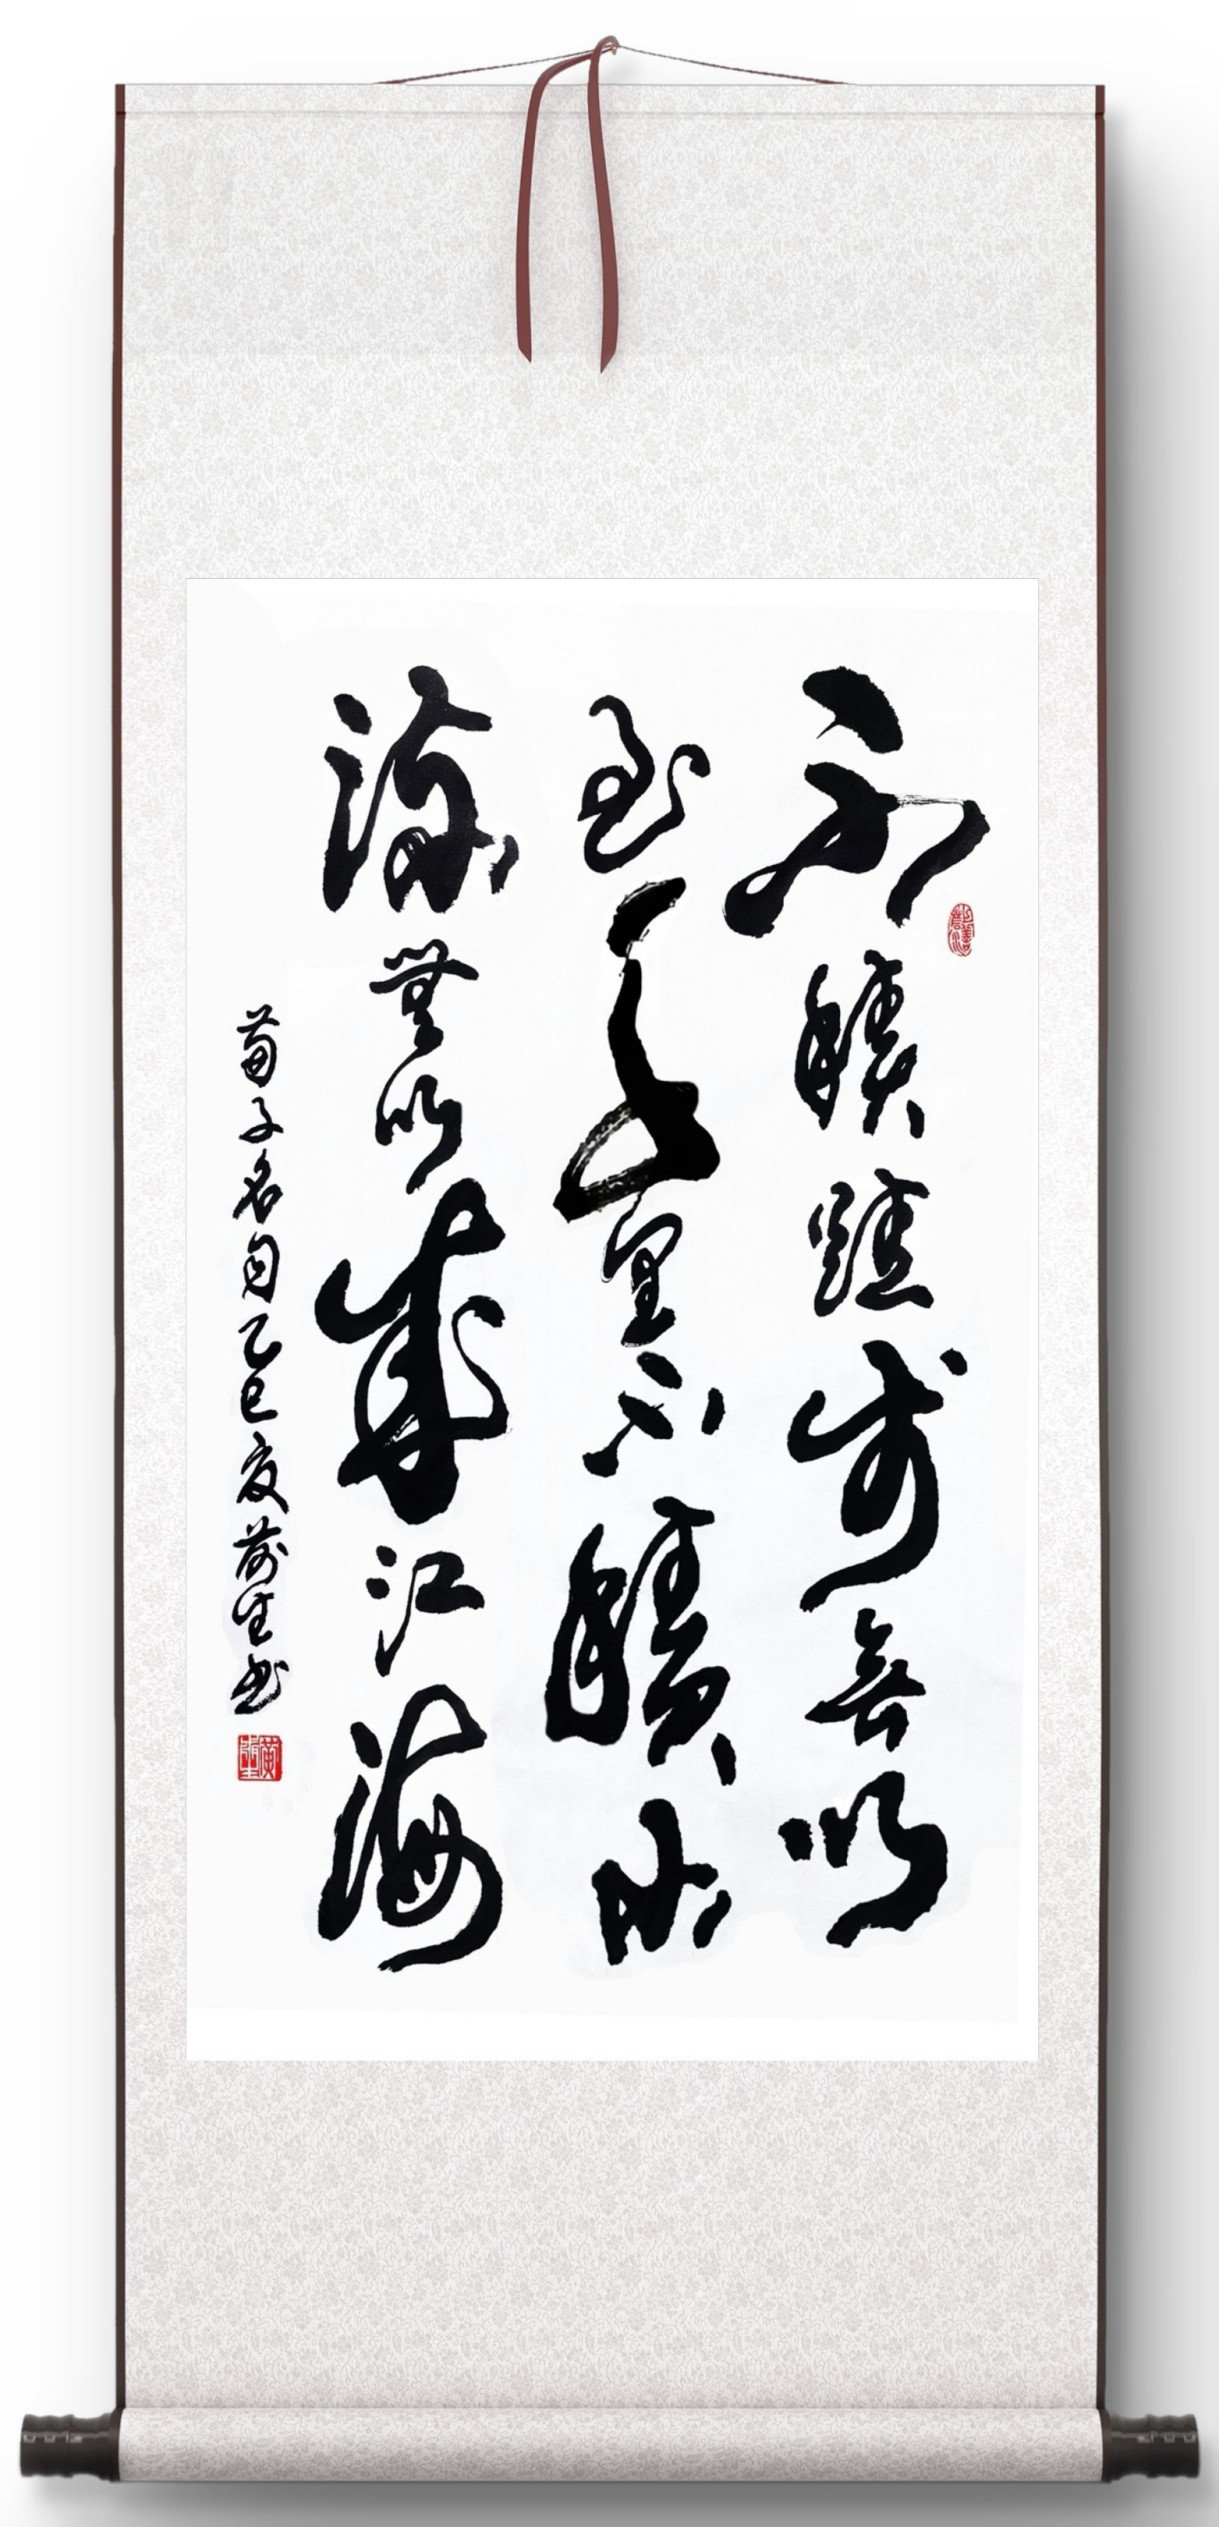 不積跬步無以
至千里不積小
流無以成江海
荀子名句乙巳夏前生书
上善若水